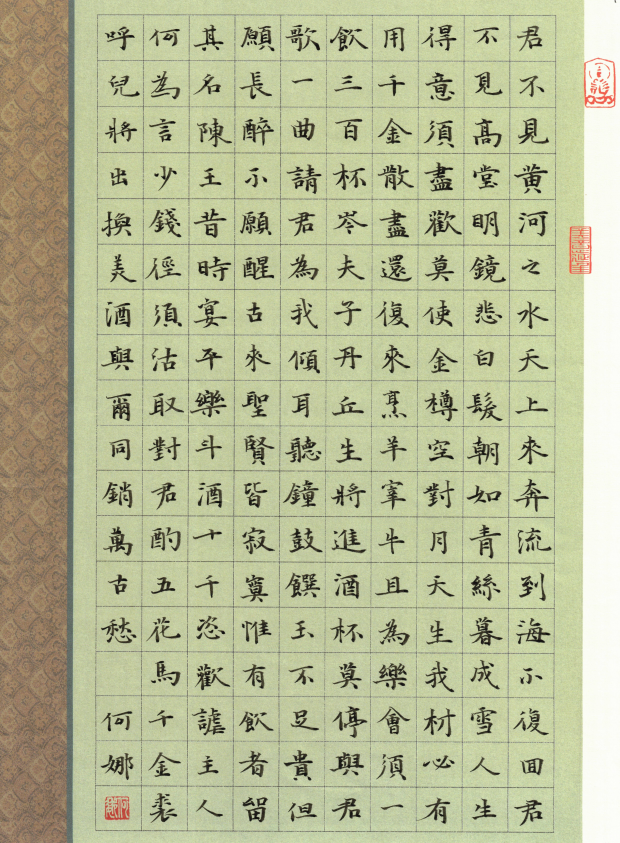 君不見黃河之水天上來奔流到海不復回君
不見高堂明鏡悲白髮朝如青絲暮成雪人生
得意須盡歡莫使金樽空對月天生我材必有
用千金散盡還復來烹羊宰牛且為樂會須一
飲三百杯岑夫子丹丘生將進酒杯莫停與君
歌一曲請君為我傾耳聽鐘鼓饌玉不足貴但
願長醉不願醒古來聖賢皆寂寞惟有飲者留
其名陳王昔時宴平樂斗酒十千恣歡謔主人
何為言少錢徑須沽取對君酌五花馬千金裘
呼兒將出換美酒與爾同銷萬古愁 何娜